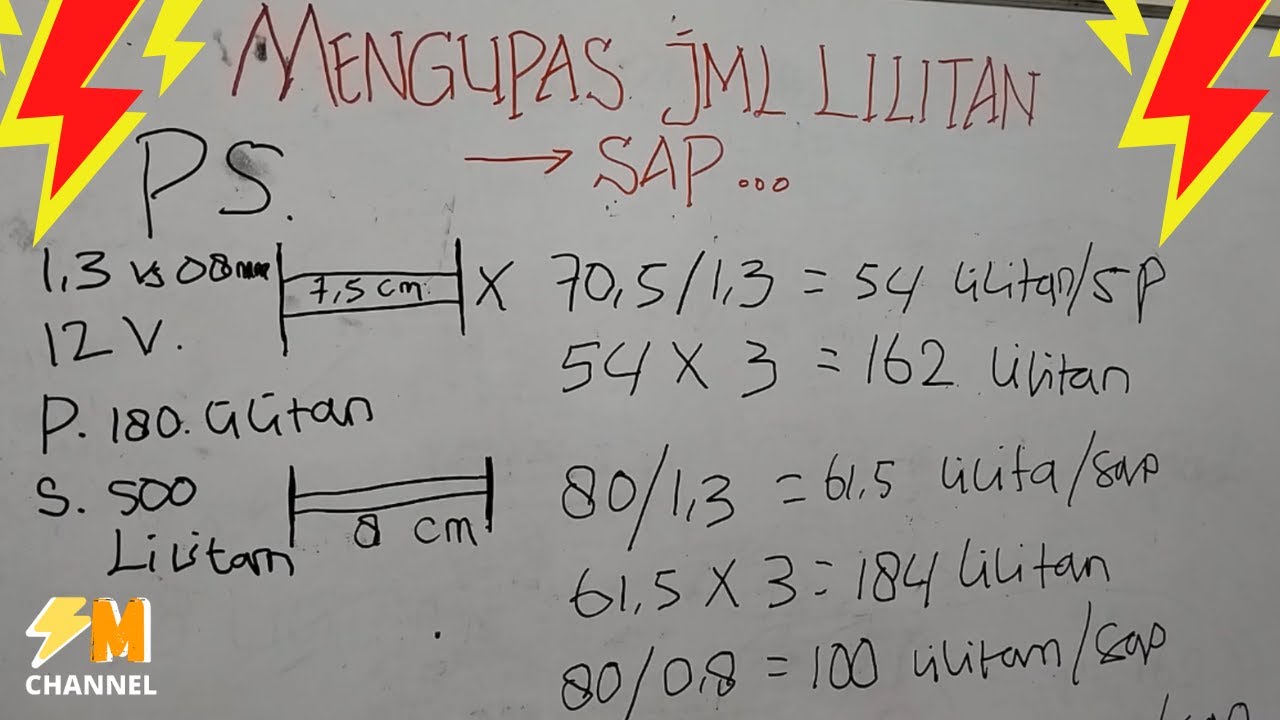 MENGUPAS JML LILITAN
→ SAP...
PS.
1,3 vs 08mm
7,5 cm
X 70,5/1,3 = 54 lilitan/sp
12 V.
54 X 3 = 162 lilitan
P. 180. lilitan
S. 500
Lilitan
8 cm
80/1,3 = 61,5 lilita/sap
61,5 X 3 = 184 lilitan
80/0,8 = 100 lilitan/sap
M
CHANNEL